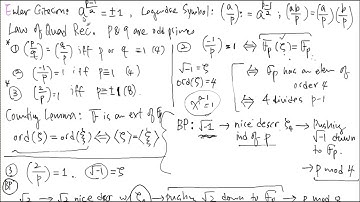 Euler Criterion: a^{\frac{p-1}{2}} = ±1, Legendre Symbol: (\frac{a}{p}) := a^{\frac{p-1}{2}}, (\frac{ab}{p}) = (\frac{a}{p})(\frac{b}{p})
Law of Quad Rec. p & q are odd primes
* ① (\frac{p}{q}) = (\frac{q}{p}) iff p or q ≡ 1 (4)
② (\frac{-1}{p}) = 1 iff p ≡ 1 (4)
* ③ (\frac{2}{p}) = 1 iff p ≡ ±1 (8)
Counting Lemma: F is an ext of F_p
ord(ξ) = ord(ξ) ⟺ ⟨ξ⟩ = ⟨ξ⟩
② (\frac{-1}{p}) = 1 ⟺ F_p(ζ) = F_p
√-1 = ζ
ord(ζ) = 4
⟺ F_p has an elem of
order 4
x^{p-1} = 1
⟺ 4 divides p-1
BP: √-1 → nice descr → pushing
ind of p
√-1 down
to F_p
→ p mod 4
③ (\frac{2}{p}) = 1. √-1 = ζ
BP
√2 → √2 nice der w/ → pushing √2 down to F_p → p mod 8